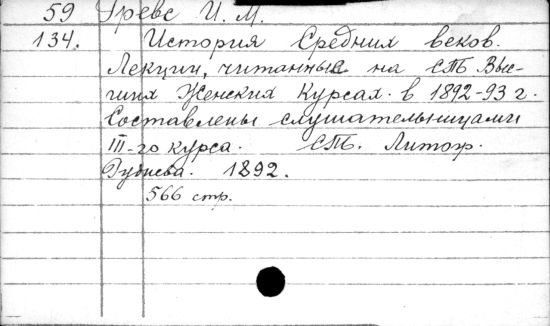 59 Гревс И. М.
134. История Средних веков.
Лекции, читанные на СПБ. Выс-
ших Женских Курсах. в 1892-93 г.
Составлены слушательницами
III-го курса. СПб. Литогр.
1892.
566 стр.